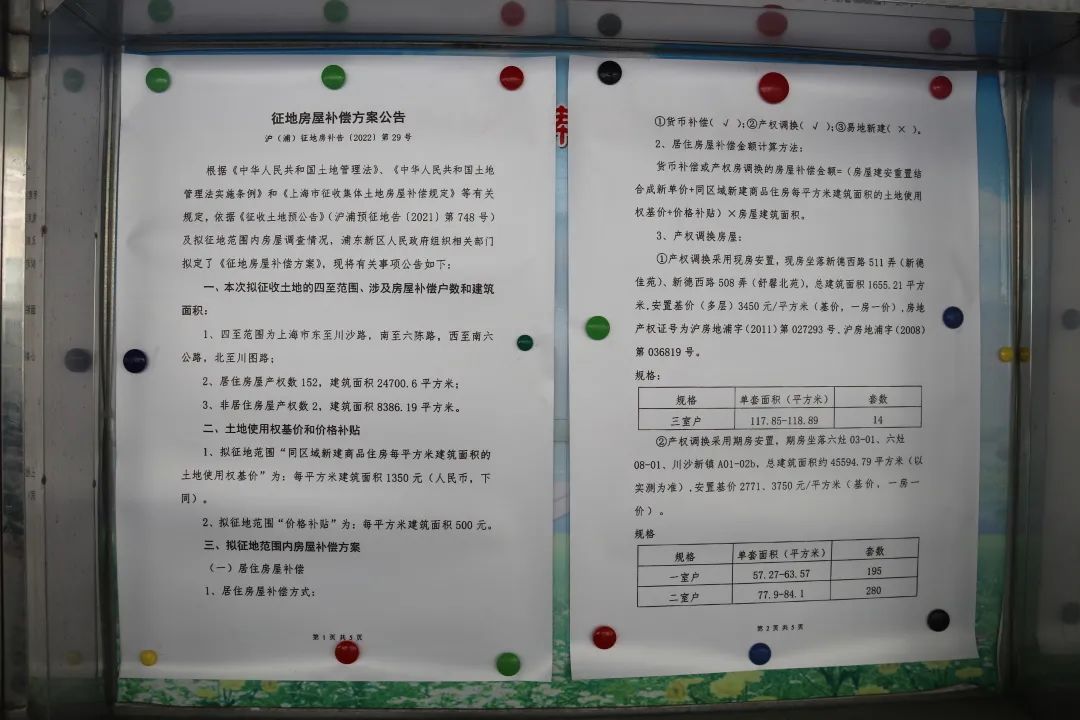 征地房屋补偿方案公告
沪（浦）征地房补告〔2022〕第 29 号
根据《中华人民共和国土地管理法》、《中华人民共和国土地
管理法实施条例》和《上海市征收集体土地房屋补偿规定》等有关
规定，依据《征收土地预公告》（沪浦预征地告〔2021〕第 748 号）
及拟征地范围内房屋调查情况，浦东新区人民政府组织相关部门
拟定了《征地房屋补偿方案》，现将有关事项公告如下：
一、本次拟征收土地的四至范围、涉及房屋补偿户数和建筑
面积：
1、四至范围为上海市东至川沙路，南至六陈路，西至南六
公路，北至川图路；
2、居住房屋产权数 152，建筑面积 24700.6 平方米；
3、非居住房屋产权数 2，建筑面积 8386.19 平方米。
二、土地使用权基价和价格补贴
1、拟征地范围“同区域新建商品住房每平方米建筑面积的
土地使用权基价”为：每平方米建筑面积 1350 元（人民币，下
同）。
2、拟征地范围“价格补贴”为：每平方米建筑面积 500 元。
三、拟征地范围内房屋补偿方案
（一）居住房屋补偿
1、居住房屋补偿方式：
第 1 页 共 5 页
①货币补偿( √ )；②产权调换( √ )；③易地新建( × )。
2、居住房屋补偿金额计算方法：
货币补偿或产权房调换的房屋补偿金额=（房屋建安重置结
合成新单价+同区域新建商品住房每平方米建筑面积的土地使用
权基价+价格补贴）×房屋建筑面积。
3、产权调换房屋：
①产权调换采用现房安置，现房坐落新德西路 511 弄（新德
佳苑）、新德西路 508 弄（舒馨北苑），总建筑面积 1655.21 平方
米.安置基价（多层）3450 元/平方米（基价，一房一价）.房地
产权证号为沪房地浦字(2011)第 027293 号.沪房地浦字(2008)
第 036819 号。
规格：
规格 单套面积（平方米） 套数
三室户 117.85-118.89 14
②产权调换采用期房安置，期房坐落六灶 03-01、六灶
08-01、川沙新镇 A01-02b，总建筑面积约 45594.79 平方米（以
实测为准）.安置基价 2771、3750 元/平方米（基价，一房一
价）。
规格
规格 单套面积（平方米） 套数
一室户 57.27-63.57 195
二室户 77.9-84.1 280
第 2 页 共 5 页